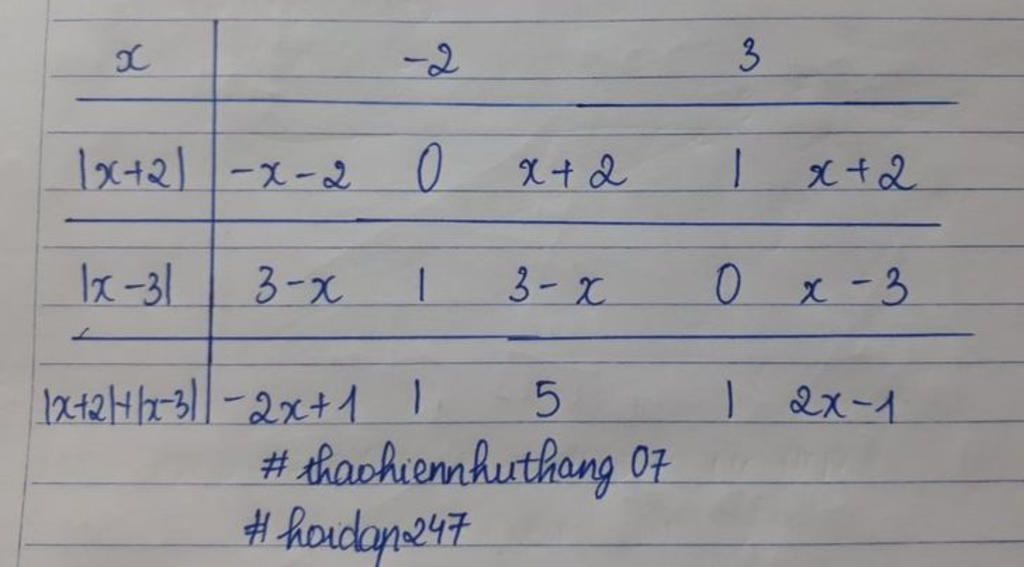 x -2 3
|x+2| -x-2 0 x+2 | x+2
|x-3| 3-x | 3-x 0 x-3
|x+2|+|x-3| -2x+1 | 5 | 2x-1
# thaohiennhuthang 07
# hoidap247